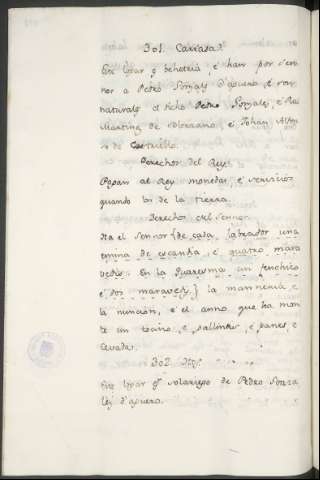 301. Carrasa?
Este logar es behetria, e han por sen
nor a Pedro Gonzalez d'aguero e son
naturales el dicho Pedro Gonzales, e Roi
Martinez de Solorzano, e Johan Alfon
so de Castrillo.
Derechos del Rey.
Pagan al Rey monedas, e servicios
quando los de la tierra.
Derechos del Sennor.
Ha el Sennor {de cada labrador una
emina de escanda, e quatro mara
vedis: En la Quaresma un senchico
e dos maravedis,} la manneria e
la nuncion, e el anno que ha mon
te un tocino, e gallinas, e panes, e
cevada.
302.
Este logar es solariego de Pedro Gonza
lez d'aguero.